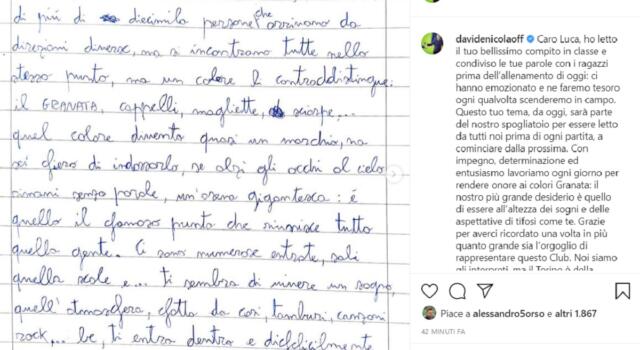 di più di diecimila persone che arrivano da
direzioni diverse, ma si incontrano tutte nello
stesso punto, ma un colore le contraddistingue:
il GRANATA, cappelli, magliette, sciarpe...
quel colore diventa quasi un marchio, ma
sei fiero di indossarlo, se alzi gli occhi al cielo
rimani senza parole, un'arena gigantesca: è
quello il famoso punto che riunisce tutto
quella gente. Ci sono numerose entrate, sali
quelle scale e... ti sembra di vivere un sogno,
quell'atmosfera, fatta da cori, tamburi, canzoni
rock... be, ti entra dentro e difficilmente
davidenicolaoff Caro Luca, ho letto
il tuo bellissimo compito in classe e
condiviso le tue parole con i ragazzi
prima dell'allenamento di oggi: ci
hanno emozionato e ne faremo tesoro
ogni qualvolta scenderemo in campo.
Questo tuo tema, da oggi, sarà parte
del nostro spogliatoio per essere letto
da tutti noi prima di ogni partita, a
cominciare dalla prossima. Con
impegno, determinazione ed
entusiasmo lavoriamo ogni giorno per
rendere onore ai colori Granata: il
nostro più grande desiderio è quello
di essere all'altezza dei sogni e delle
aspettative di tifosi come te. Grazie
per averci ricordato una volta in più
quanto grande sia l'orgoglio di
rappresentare questo Club. Noi siamo
gli interpreti, ma il Torino è della
Piace a alessandro5orso e altri 1.867
42 MINUTI FA